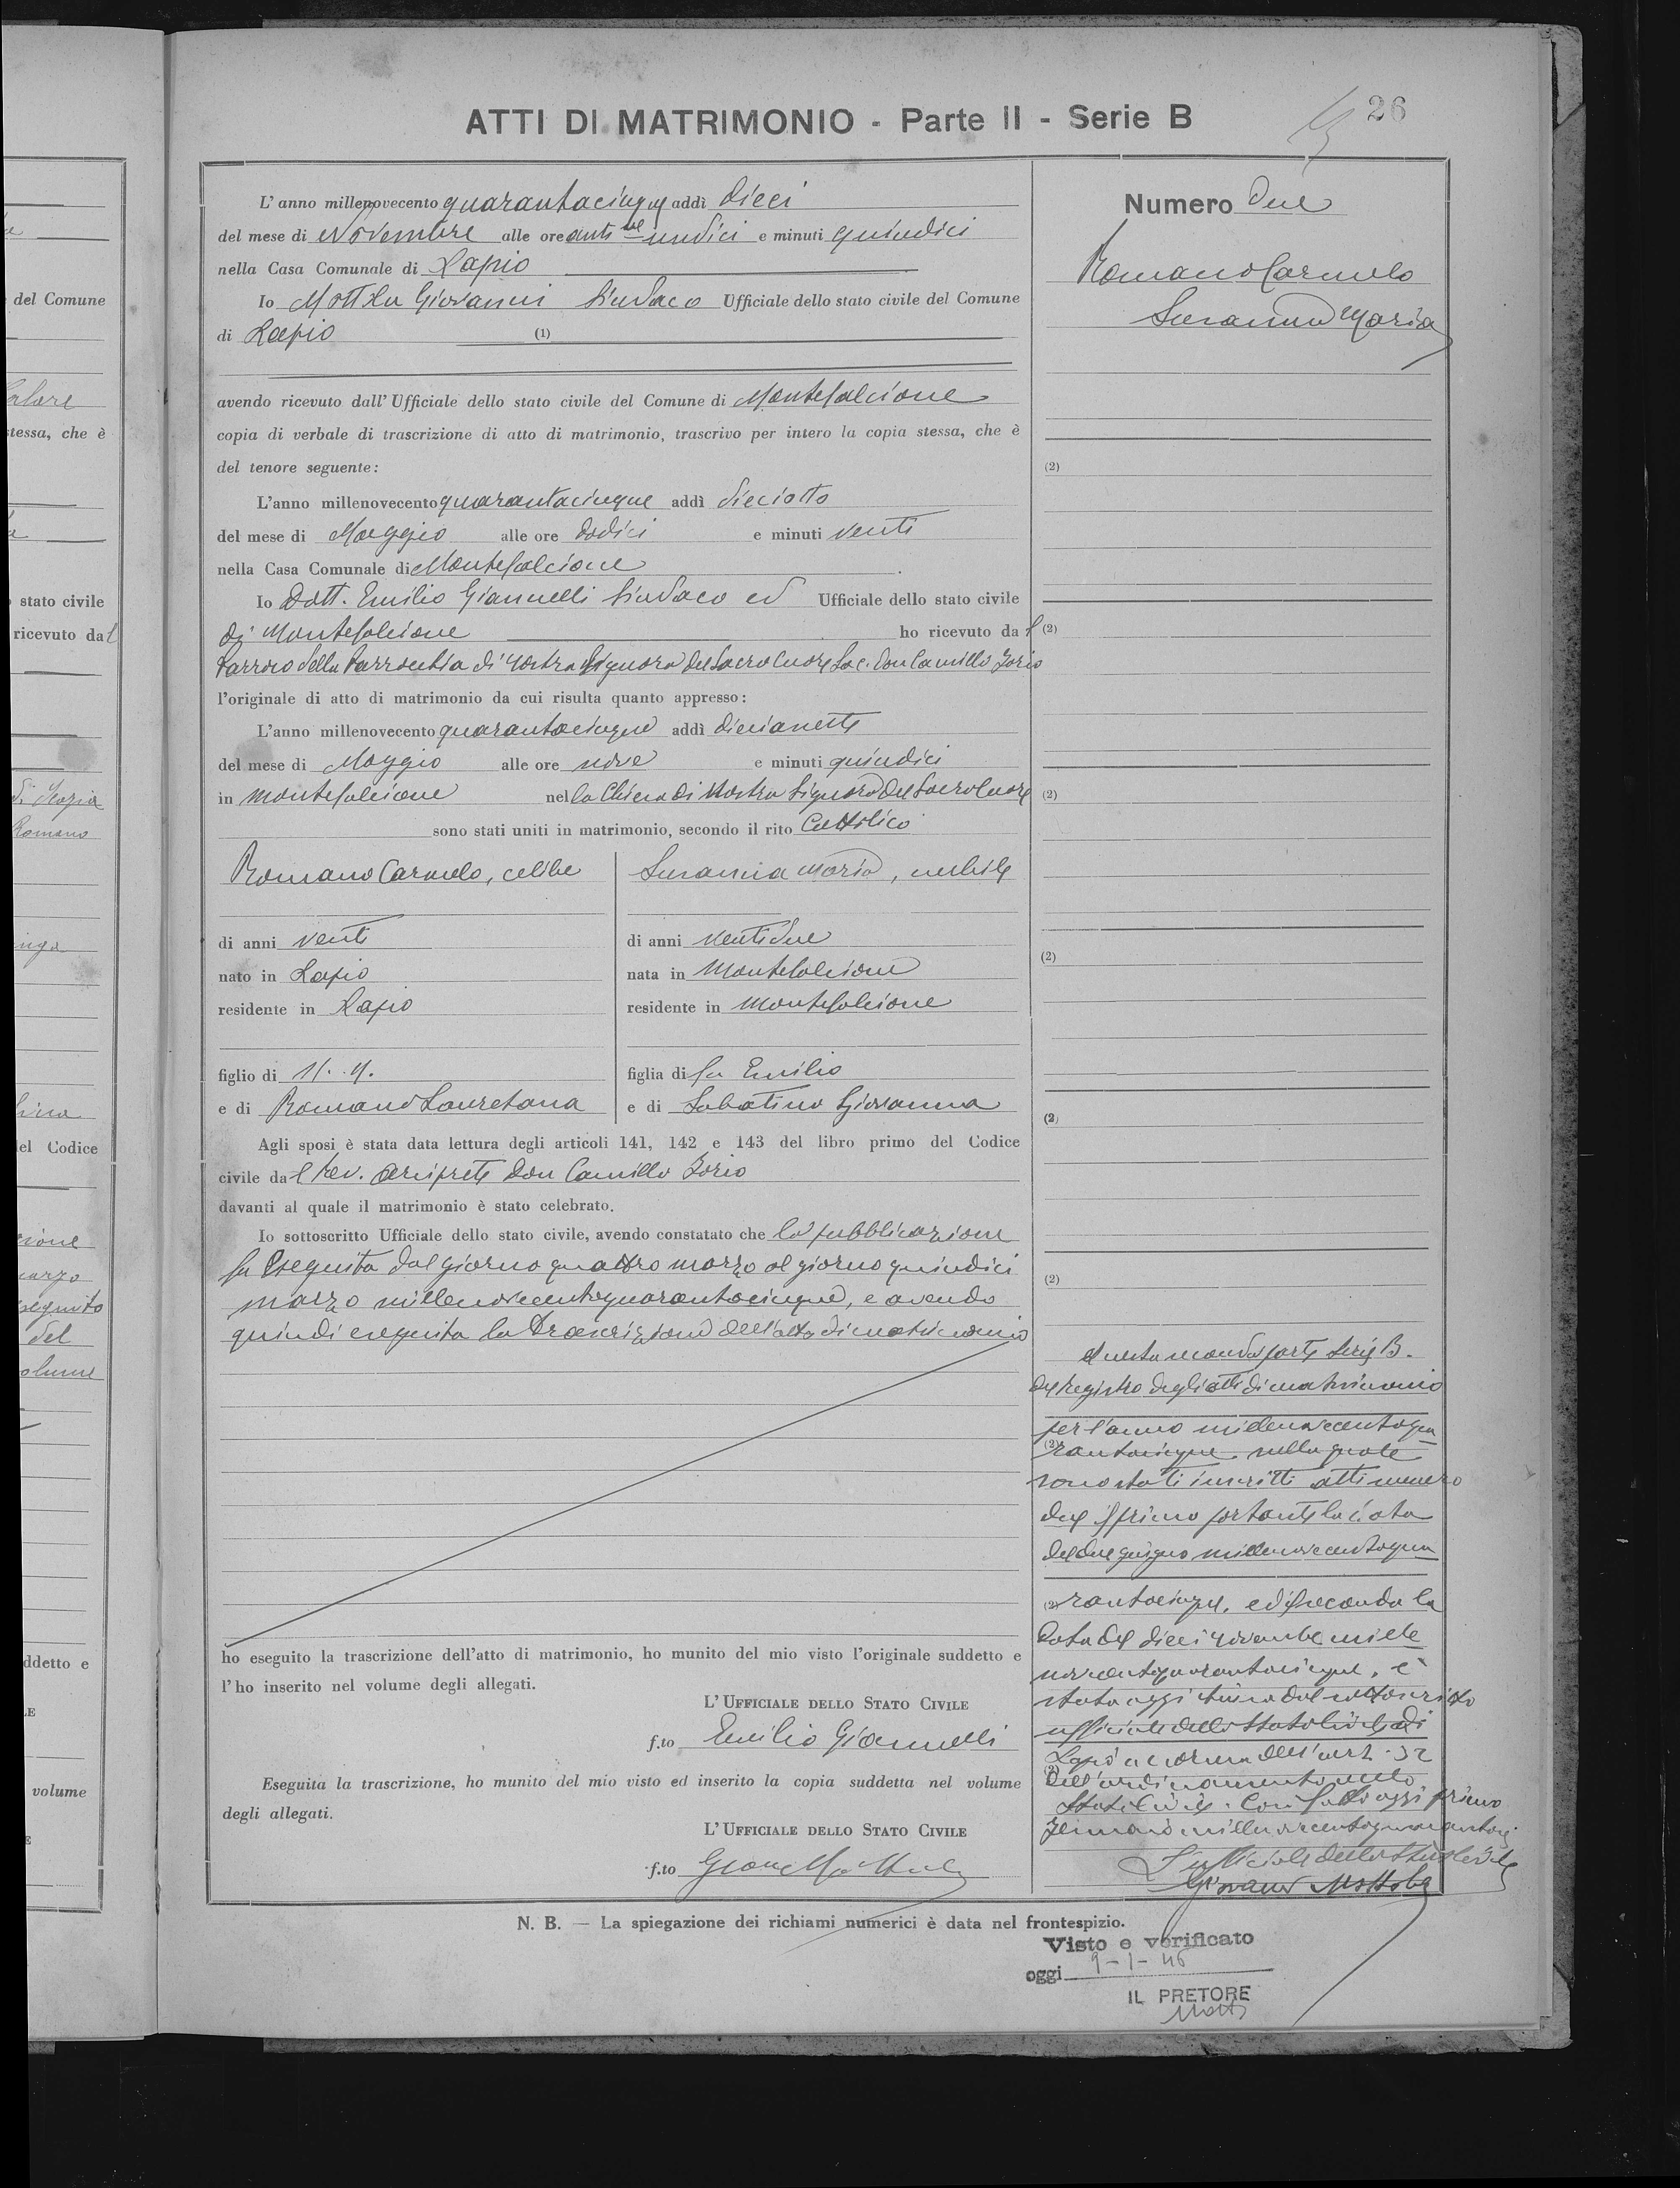 ATTI DI MATRIMONIO - Parte II - Serie B
26
L'anno millenovecento quarantacinque addì dieci
del mese di Novembre alle ore anti undici e minuti quindici
nella Casa Comunale di Lapio
Io Mottola Giovanni Sindaco Ufficiale dello stato civile del Comune
di Lapio (1)
avendo ricevuto dall' Ufficiale dello stato civile del Comune di Montefalcione
copia di verbale di trascrizione di atto di matrimonio, trascrivo per intero la copia stessa, che è
del tenore seguente:
L'anno millenovecento quarantacinque addì dieciotto
del mese di Maggio alle ore dodici e minuti venti
nella Casa Comunale di Montefalcione
Io Dott. Emilio Giannelli Sindaco ed Ufficiale dello stato civile
di Montefalcione ho ricevuto dal
Parroco della Parrocchia di Nostra Signora del Sacro Cuore Sac. Don Camillo Iorio
l'originale di atto di matrimonio da cui risulta quanto appresso:
L'anno millenovecento quarantacinque addì diciasette
del mese di Maggio alle ore nove e minuti quindici
in Montefalcione nella Chiesa di Nostra Signora del Sacro Cuore
sono stati uniti in matrimonio, secondo il rito Cattolico
Romano Carmelo, celibe
di anni venti
nato in Lapio
residente in Lapio
figlio di N. N.
e di Romano Lauretana
Maria, nubile
di anni ventidue
nata in Montefalcione
residente in Montefalcione
figlia di fu Emilio
e di Sabatino Giovanna
Agli sposi è stata data lettura degli articoli 141, 142 e 143 del libro primo del Codice
civile dal Rev. Arciprete Don Camillo Iorio
davanti al quale il matrimonio è stato celebrato.
Io sottoscritto Ufficiale dello stato civile, avendo constatato che la pubblicazione
fu eseguita dal giorno quattro marzo al giorno quindici
marzo millenovecentoquarantacinque, e avendo
quindi eseguita la trascrizione dell'atto di matrimonio
ho eseguito la trascrizione dell'atto di matrimonio, ho munito del mio visto l'originale suddetto e
l'ho inserito nel volume degli allegati.
L'UFFICIALE DELLO STATO CIVILE
f.to Emilio Giannelli
Eseguita la trascrizione, ho munito del mio visto ed inserito la copia suddetta nel volume
degli allegati.
L'UFFICIALE DELLO STATO CIVILE
f.to Giovanni Mottola
Numero due
Romano Carmelo
Maria
(2)
(2)
(2)
(2)
(2)
(2)
Questa seconda parte Serie B.
del registro degli atti di matrimonio
per l'anno millenovecentoqua
(2) rantacinque, nella quale
sono stati inscritti atti numero
due il primo portante la data
del due giugno millenovecentoqua
(2) rantacinque, ed il secondo la
data del dieci novembre mille
novecentoquarantacinque, è
stata oggi chiusa dal sottoscritto
ufficiale dello Stato Civile di
Lapio a norma dell'art. 32
(2) dell'ordinamento dello
Stato Civile. Così fatto oggi primo
Gennaio
L'ufficiale dello Stato Civile
Giovanni Mottola
N. B. — La spiegazione dei richiami numerici è data nel frontespizio.
Visto e verificato
oggi 9-1-46
IL PRETORE
del Comune
stessa, che è
stato civile
ricevuto dal
di Maria
Romano
del Codice
marzo
eseguito
del
volume
suddetto e
volume